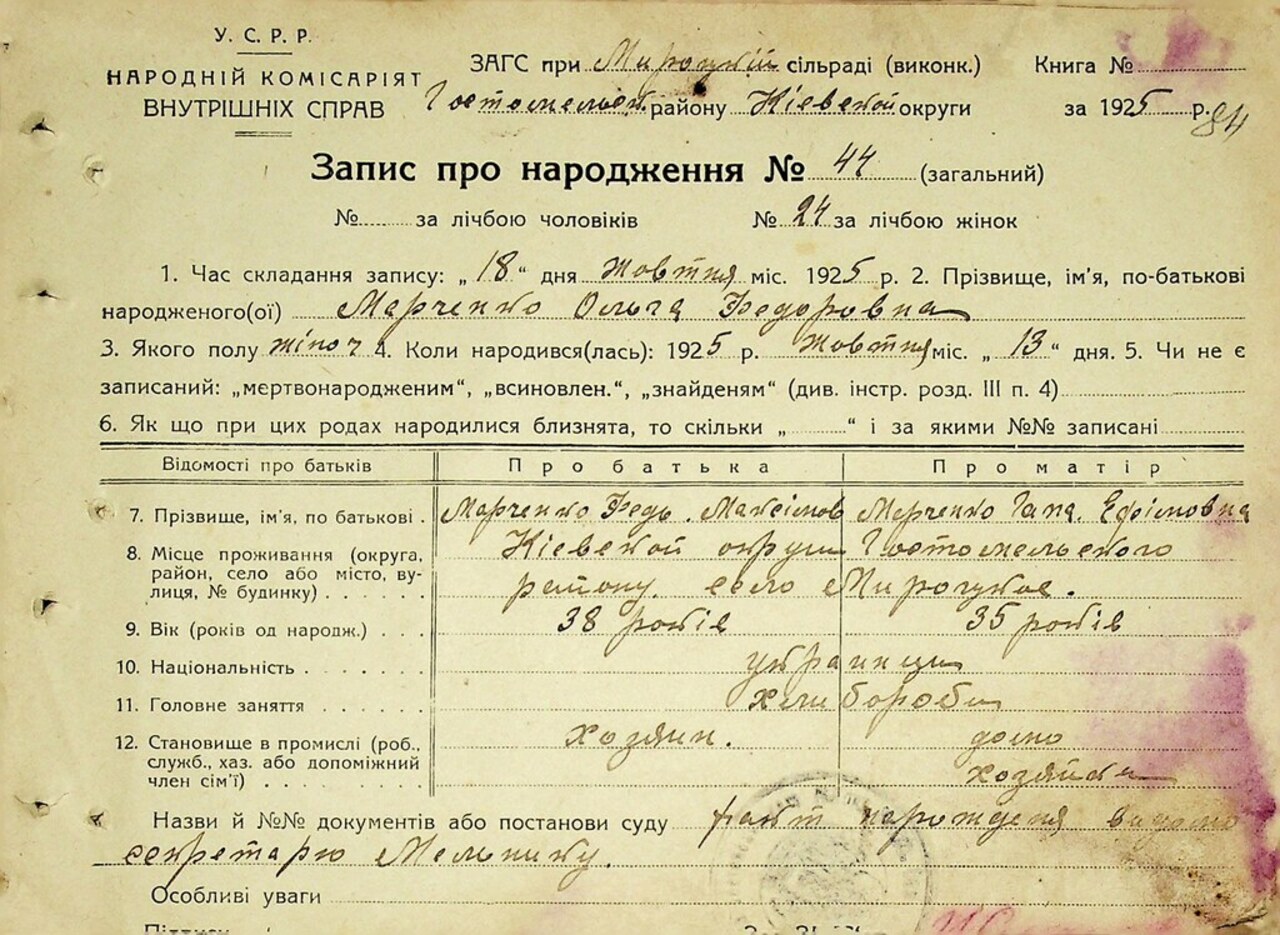 У. С. Р. Р.
НАРОДНІЙ КОМІСАРІЯТ
ВНУТРІШНІХ СПРАВ
ЗАГС при Мироцкій сільраді (виконк.) Книга №
Гостомельск. району Кіевской округи за 1925 р. 84
Запис про народження № 44 (загальний)
№ за лічбою чоловіків № 24 за лічбою жінок
1. Час складання запису: „18“ дня Жовтня міс. 1925 р. 2. Прізвище, ім'я, по-батькові
народженого(ої) Марченко Ольга Федоровна
3. Якого полу жіноч 4. Коли народився(лась): 1925 р. Жовтня міс. „13“ дня. 5. Чи не є
записаний: „мертвонародженим“, „всиновлен.“, „знайденям“ (див. інстр. розд. III п. 4)
6. Як що при цих родах народилися близнята, то скільки „ “ і за якими №№ записані
Відомості про батьків Про батька Про матір
7. Прізвище, ім'я, по батькові . Марченко Федь. Максімов Марченко Гапа. Ефімовна
8. Місце проживання (округа, Кіевской округи Гостомельского
район, село або місто, ву- району. село Мироцкое.
лиця, № будинку) . . . . . .
9. Вік (років од народж.) . . . 38 років 35 років
10. Національність . . . . . . украинци
11. Головне заняття . . . . . . хлибороби
12. Становище в промислі (роб., хозяин. домо
служб., хаз. або допоміжний хозяйка
член сім'ї) . . . . . . . . .
Назви й №№ документів або постанови суду факт нарожденя видомо
секретарю Мельнику.
Особливі уваги
Підписи